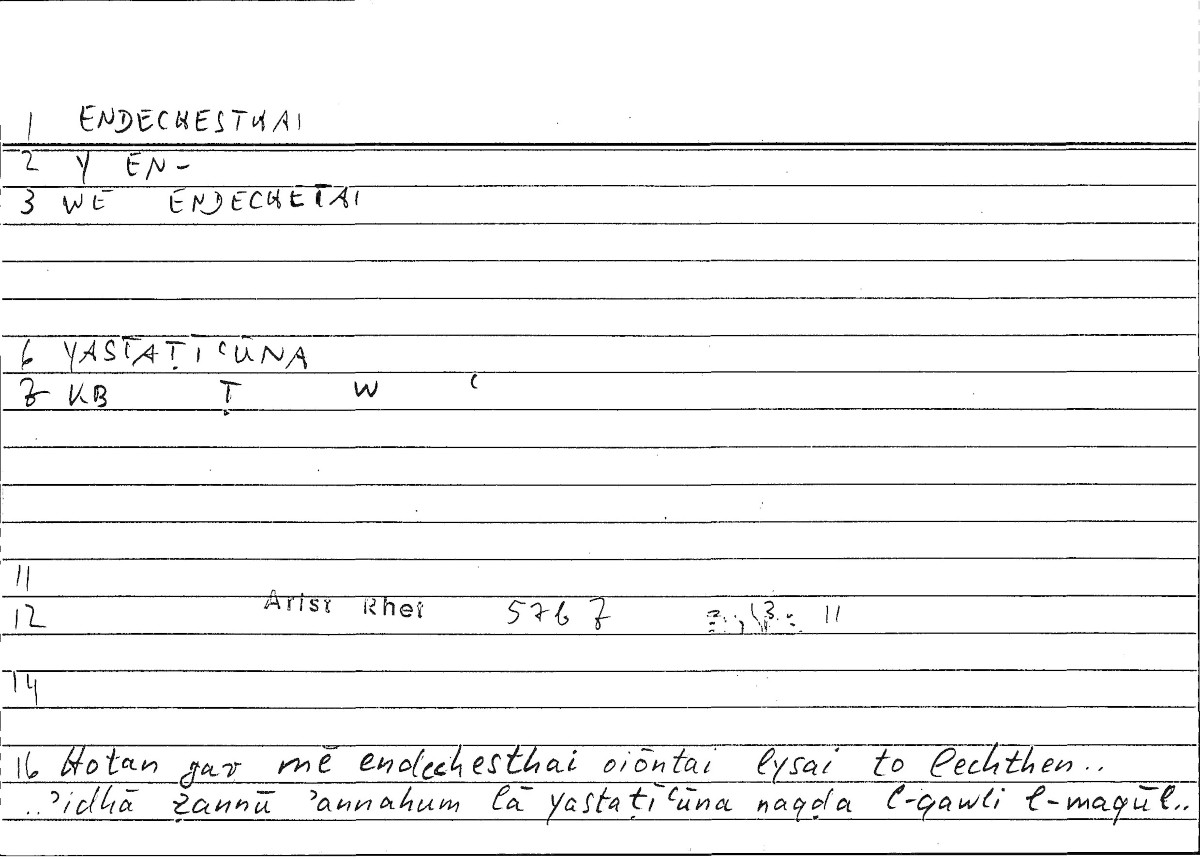 1 ENDECHESTHAI
2 Y EN-
3 WE ENDECHETAI
6 YASTAṬĪʿŪNA
7 KB Ṭ W ʿ
11
12 Arist Rhet 57b7 11
14
16 Hotan gar mē endechesthai oiōntai lysai to lechthen..
..ʾidhā ẓannū ʾannahum lā yastaṭīʿūna naqḍa l-qawli l-maqūl..